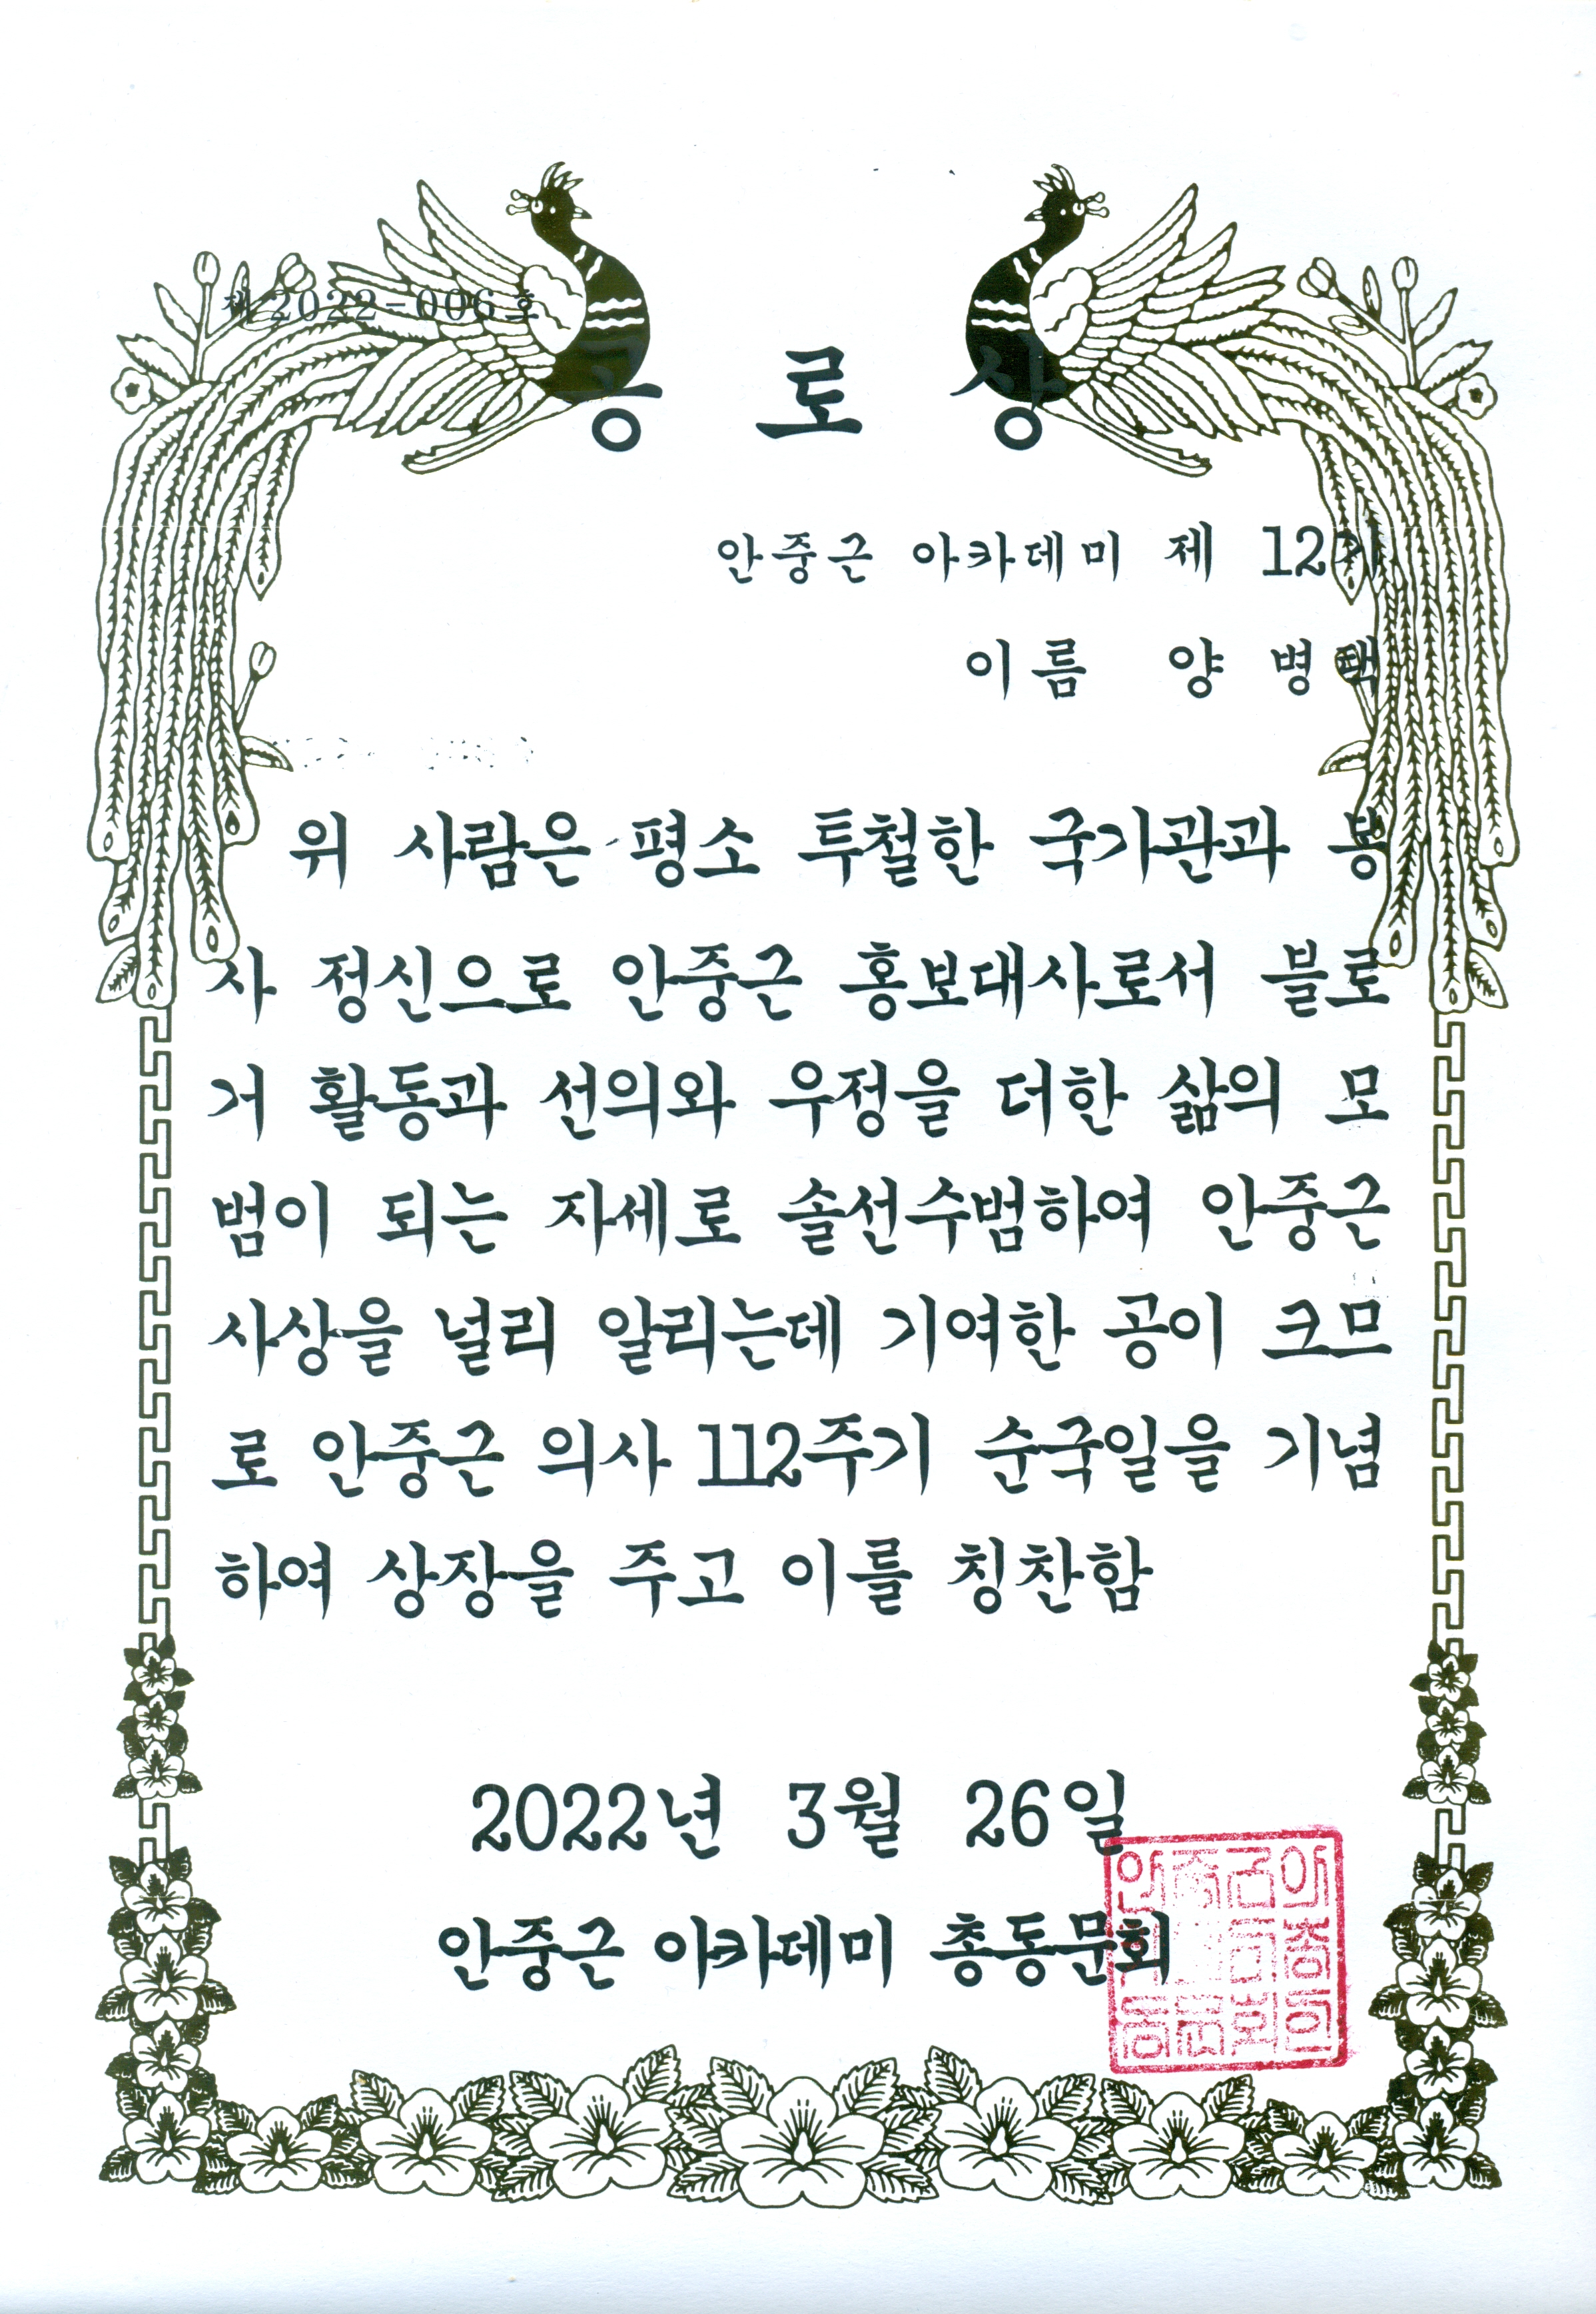 제 2022-006호
공 로 상
안중근 아카데미 제 12기
이름 양 병 택
위 사람은 평소 투철한 국가관과 봉
사 정신으로 안중근 홍보대사로서 블로
거 활동과 선의와 우정을 더한 삶의 모
범이 되는 자세로 솔선수범하여 안중근
사상을 널리 알리는데 기여한 공이 크므
로 안중근 의사 112주기 순국일을 기념
하여 상장을 주고 이를 칭찬함
2022년 3월 26일
안중근 아카데미 총동문회